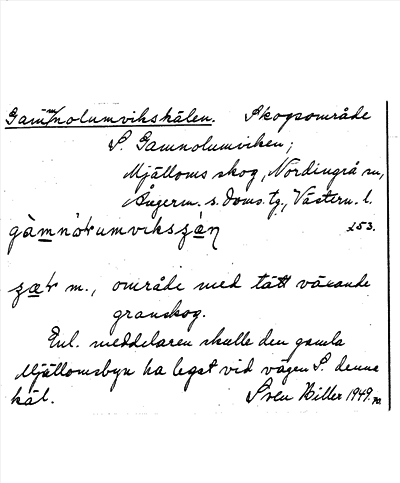 Gammolumvikskälen. Skogsområde
S. Gamnolumviken;
Mjälloms skog, Nordingrå sn,
Ångerm. s. doms. tg., Västern. l.
253.
m., område med tätt växande
granskog.
Enl. meddelaren skulle den gamla
Mjällomsbyn ha legat vid vägen S. denna
käl. Sven Biller 1949.